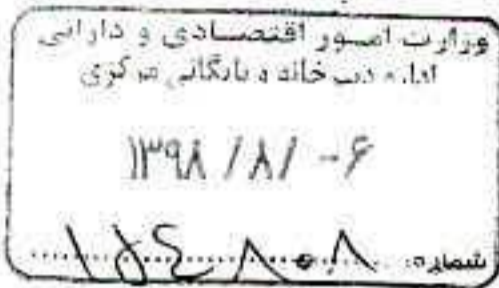 وزارت امور اقتصادی و دارائی
اداره دبیرخانه و بایگانی مرکزی
۱۳۹۸/۸/-۶
شماره: ۱۵۴۸۰۸